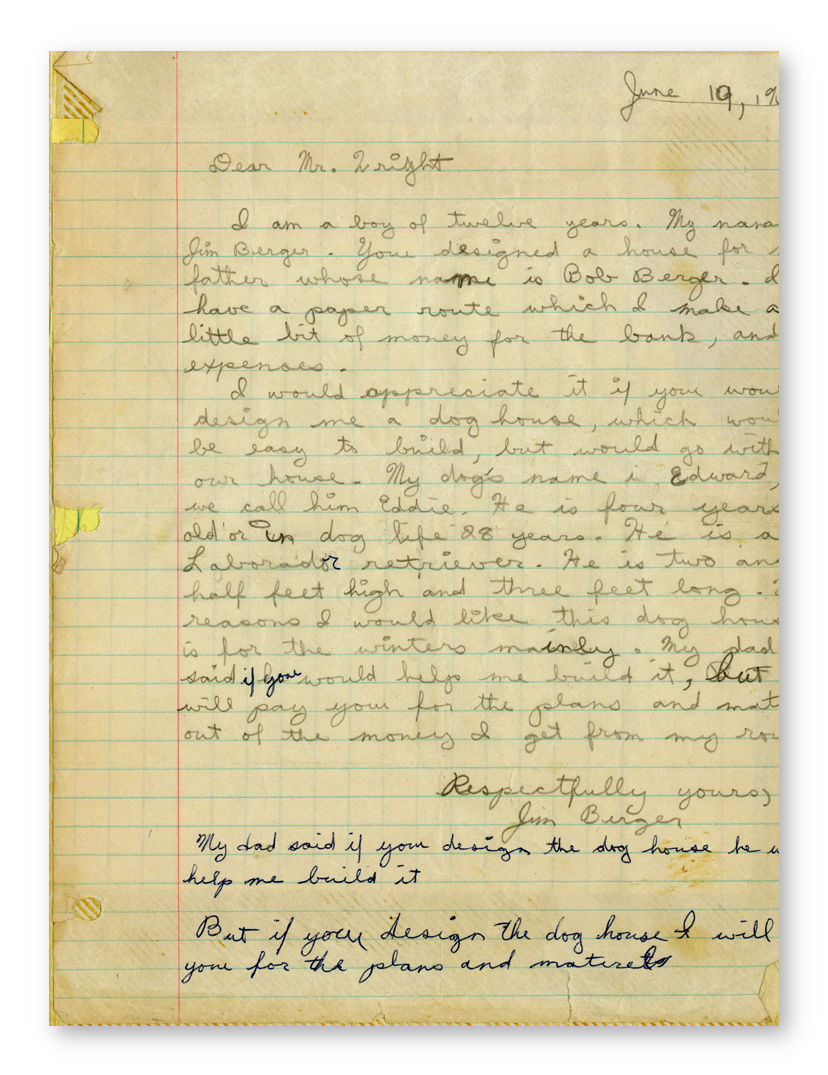 June 19, 19
Dear Mr. Wright
I am a boy of twelve years. My name
Jim Berger. You designed a house for
father whose name is Bob Berger. I
have a paper route which I make a
little bit of money for the bank, and
expenses.
I would appreciate it if you wou
design me a dog house, which wou
be easy to build, but would go with
our house. My dog's name i Edward,
we call him Eddie. He is four years
old or in dog life 28 years. He is a
Laborador retriever. He is two an
half feet high and three feet long.
reasons I would like this dog hous
is for the winters mainly. My dad
said if you would help me build it, but
will pay you for the plans and mat
out of the money I get from my rou
Respectfully yours,
Jim Berger
My dad said if you design the dog house he w
help me build it
But if you design the dog house I will
you for the plans and matirels